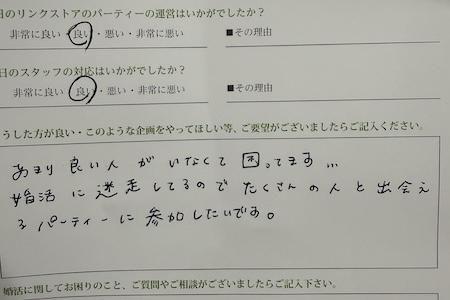 日のリンクストアのパーティーの運営はいかがでしたか？
非常に良い・良い・悪い・非常に悪い　■その理由
日のスタッフの対応はいかがでしたか？
非常に良い・良い・悪い・非常に悪い　■その理由
うした方が良い・このような企画をやってほしい等、ご要望がございましたらご記入ください。
あまり良い人がいなくて困ってます…
婚活に迷走してるのでたくさんの人と出会え
るパーティーに参加したいです。
婚活に関してお困りのこと、ご質問やご相談がございましたらご記入下さい。